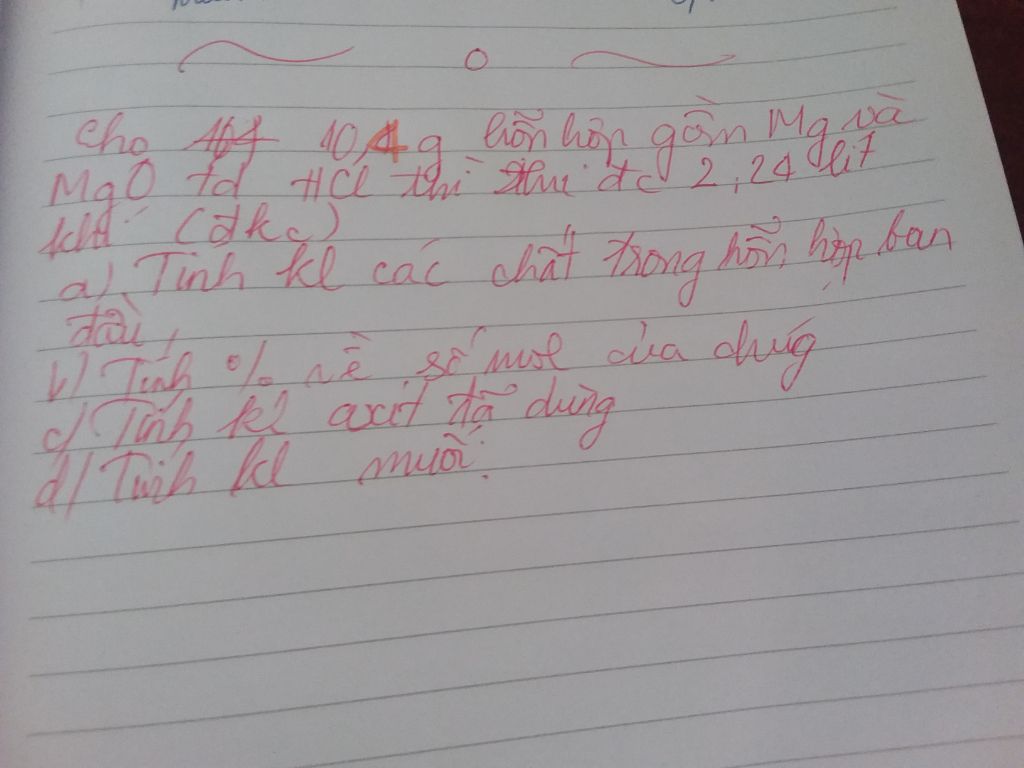 Cho 10,4g hỗn hợp gồm Mg và
MgO td HCl thì thu đc 2,24 lít
khí (đkc)
a) Tính kl các chất trong hỗn hợp ban
đầu,
b) Tính % về số mol của chúg
c) Tính kl axit đã dùng
d) Tính kl muối.